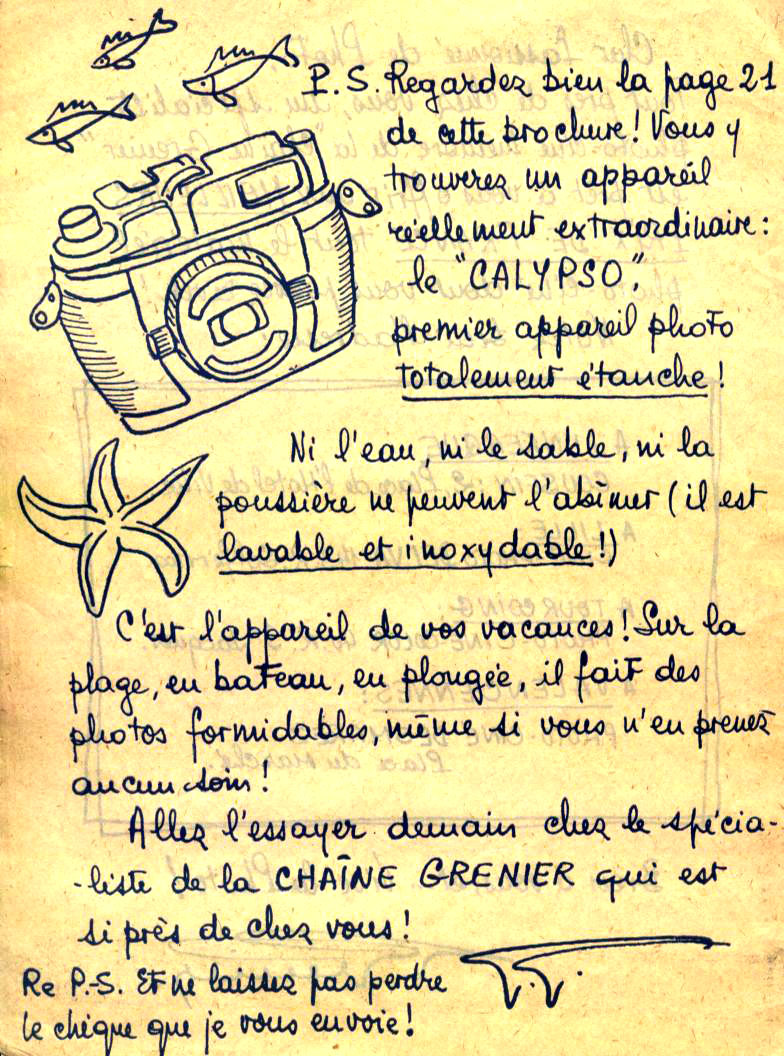 P.S. Regardez bien la page 21
de cette brochure! Vous y
trouverez un appareil
réellement extraordinaire:
le "CALYPSO",
premier appareil photo
totalement étanche!
Ni l'eau, ni le sable, ni la
poussière ne peuvent l'abîmer (il est
lavable et inoxydable!)
C'est l'appareil de vos vacances! Sur la
plage, en bateau, en plongée, il fait des
photos formidables, même si vous n'en prenez
aucun soin!
Allez l'essayer demain chez le spécia-
-liste de la CHAÎNE GRENIER qui est
si près de chez vous!
Re P.-S. Et ne laissez pas perdre
le chèque que je vous envoie!